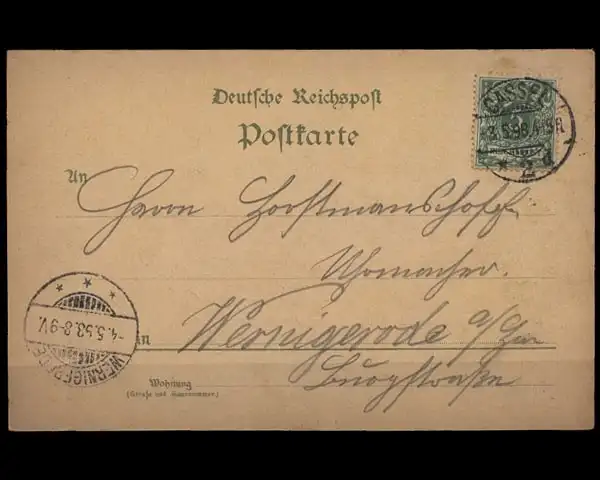 Deutsche Reichspost
Postkarte
CASSEL
3.5.98.4-5N.
* 2 d
An
Herrn Horstmanshoff
Uhrmacher.
in Wernigerode a/Harz
Burgstraße
Wohnung
(Straße und Hausnummer)
WERNIGERODE
-4.5.98.8-9V.